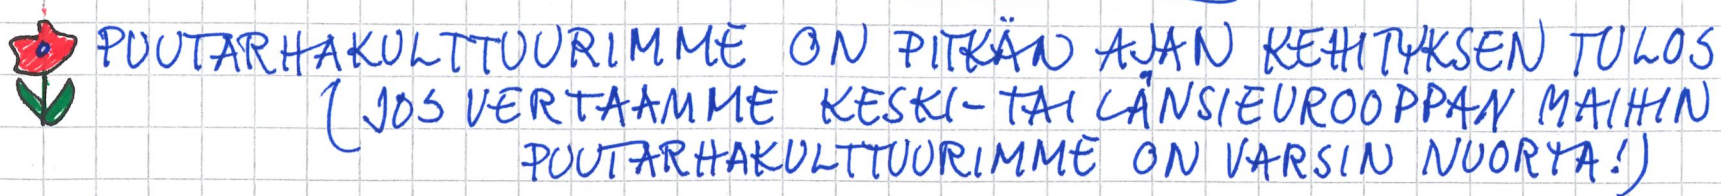 PUUTARHAKULTTUURIMME ON PITKÄN AJAN KEHITYKSEN TULOS
(JOS VERTAAMME KESKI- TAI LÄNSIEUROOPPAN MAIHIN
PUUTARHAKULTTUURIMME ON VARSIN NUORTA!)